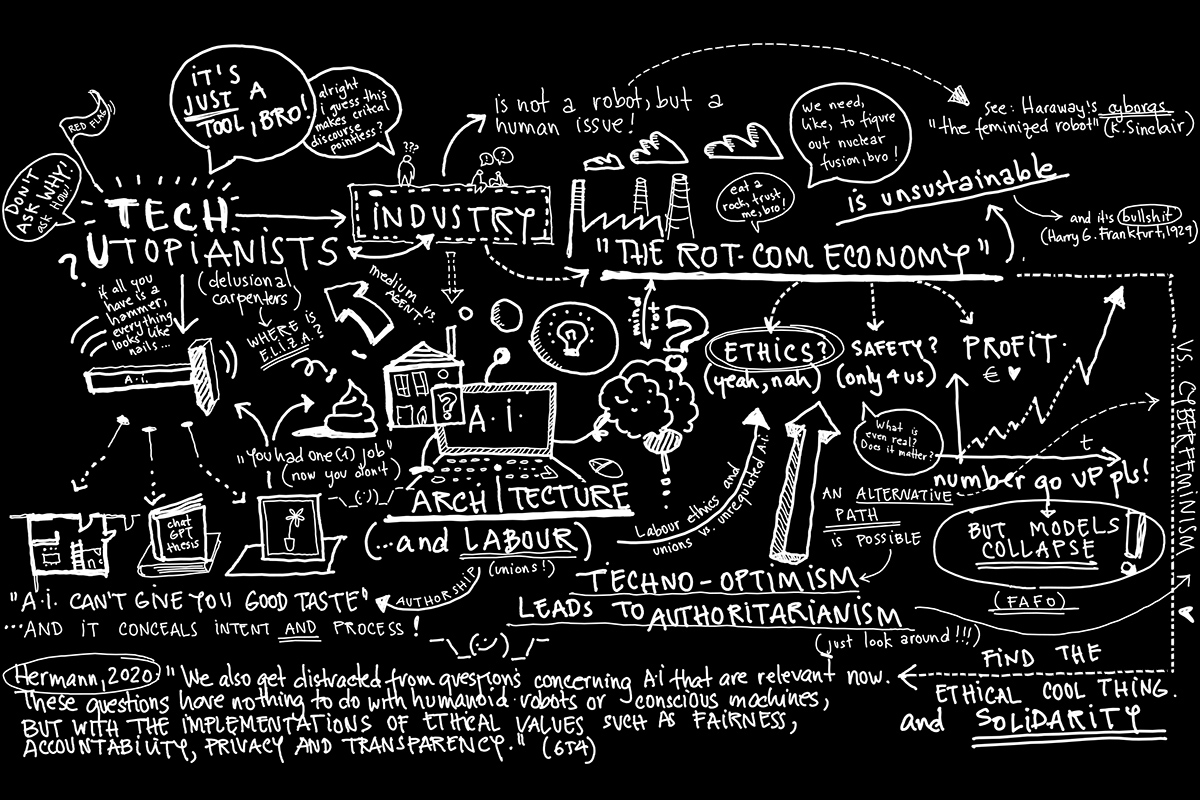 IT'S
JUST A
TOOL, BRO!
alright
i guess this
makes critical
discourse
pointless?
RED FLAG
DON'T
ASK WHY!
ask how!
is not a robot, but a
human issue!
we need,
like, to figure
out nuclear
fusion, bro!
see: Haraway's cyborgs
"the feminized robot" (K. Sinclair)
???
! ?
TECH
UTOPIANISTS
INDUSTRY
eat a
rock, trust
me, bro!
is unsustainable
and it's bullshit
(Harry G. Frankfurt, 1929)
"THE ROT-COM ECONOMY"
?
if all you
have is a
hammer,
everything
looks like
nails...
(delusional
carpenters)
WHERE IS
E.L.I.Z.A.?
medium vs.
AGENT.
mind
rot
?
ETHICS?
(yeah, nah)
SAFETY?
(only 4 us)
PROFIT.
€ ♥
VS. CYBERFEMINISM
A.i.
?
A.I.
What is
even real?
Does it matter?
t
number go UP pls!
"You had one (1) job"
(now you don't)
¯\_(ツ)_/¯
ARCHITECTURE
(...and LABOUR)
(unions!)
Labour ethics and
unions vs. unregulated A.i.
AN ALTERNATIVE
PATH
is POSSIBLE
BUT MODELS
COLLAPSE
!
(FAFO)
chat
GPT
thesis
"A.i. CAN'T GIVE YOU GOOD TASTE"
...AND IT CONCEALS INTENT AND PROCESS!
AUTHORSHIP
¯\_(ツ)_/¯
TECHNO-OPTIMISM
LEADS TO AUTHORITARIANISM
(just look around!!!)
FIND THE
ETHICAL COOL THING.
and SOLIDARITY
Hermann, 2020 "We also get distracted from questions concerning Ai that are relevant now.
These questions have nothing to do with humanoid robots or conscious machines,
BUT WITH THE IMPLEMENTATIONS OF ETHICAL VALUES SUCH AS FAIRNESS,
ACCOUNTABILITY, PRIVACY AND TRANSPARENCY." (654)